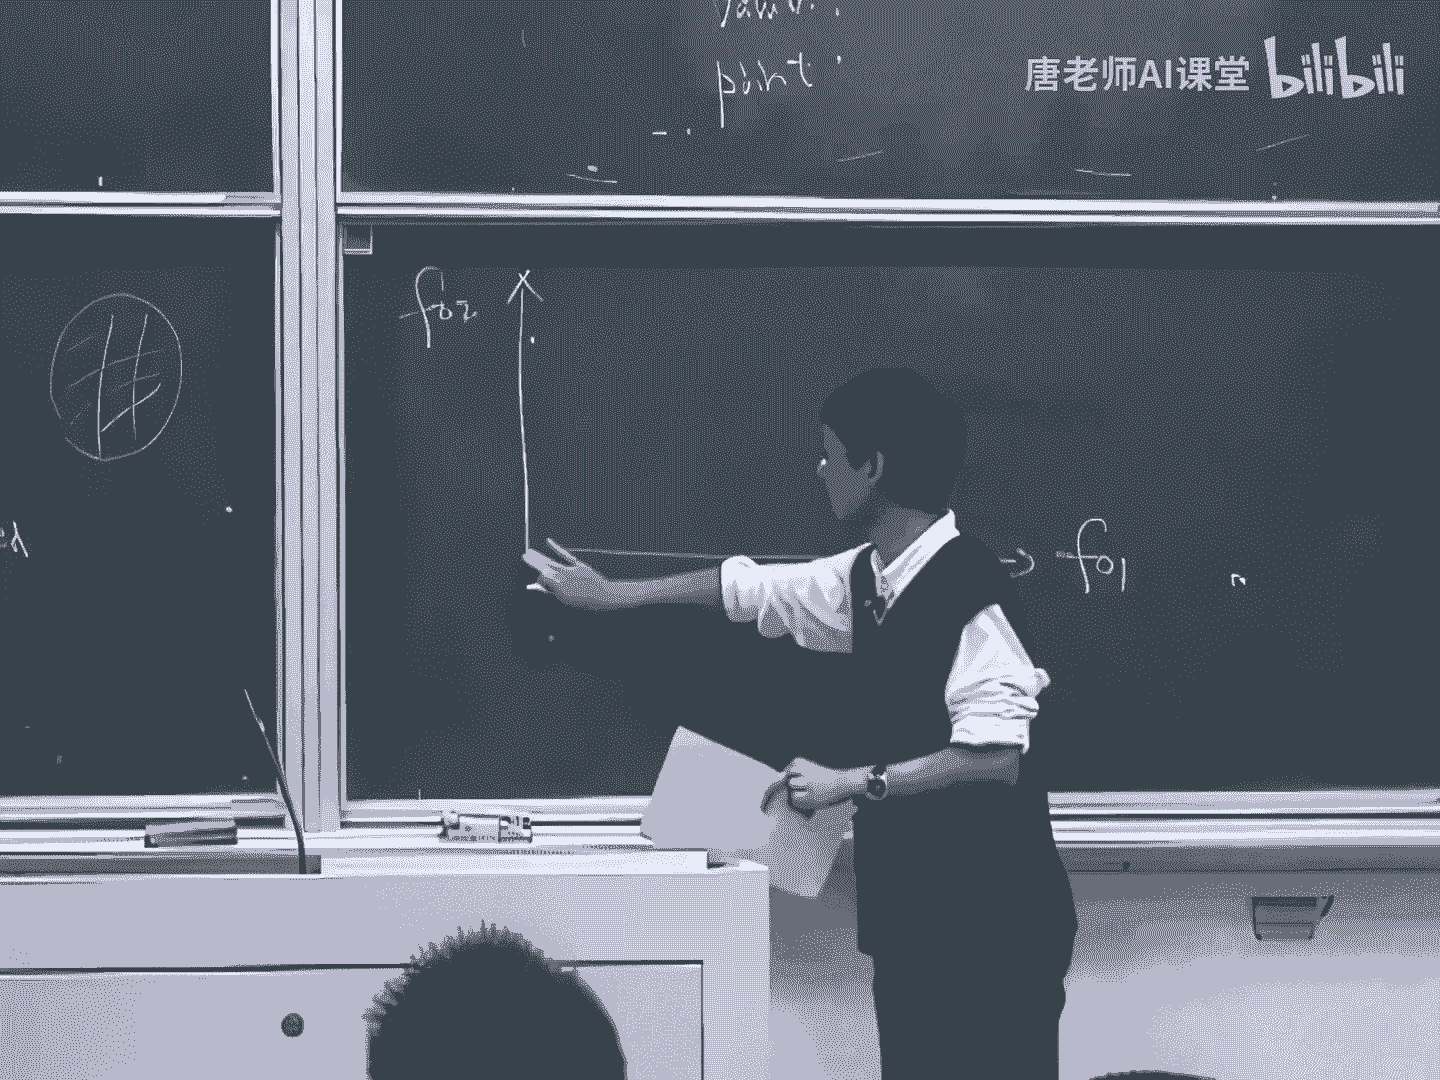 point :
唐老师AI课堂 bilibili
f02
f01